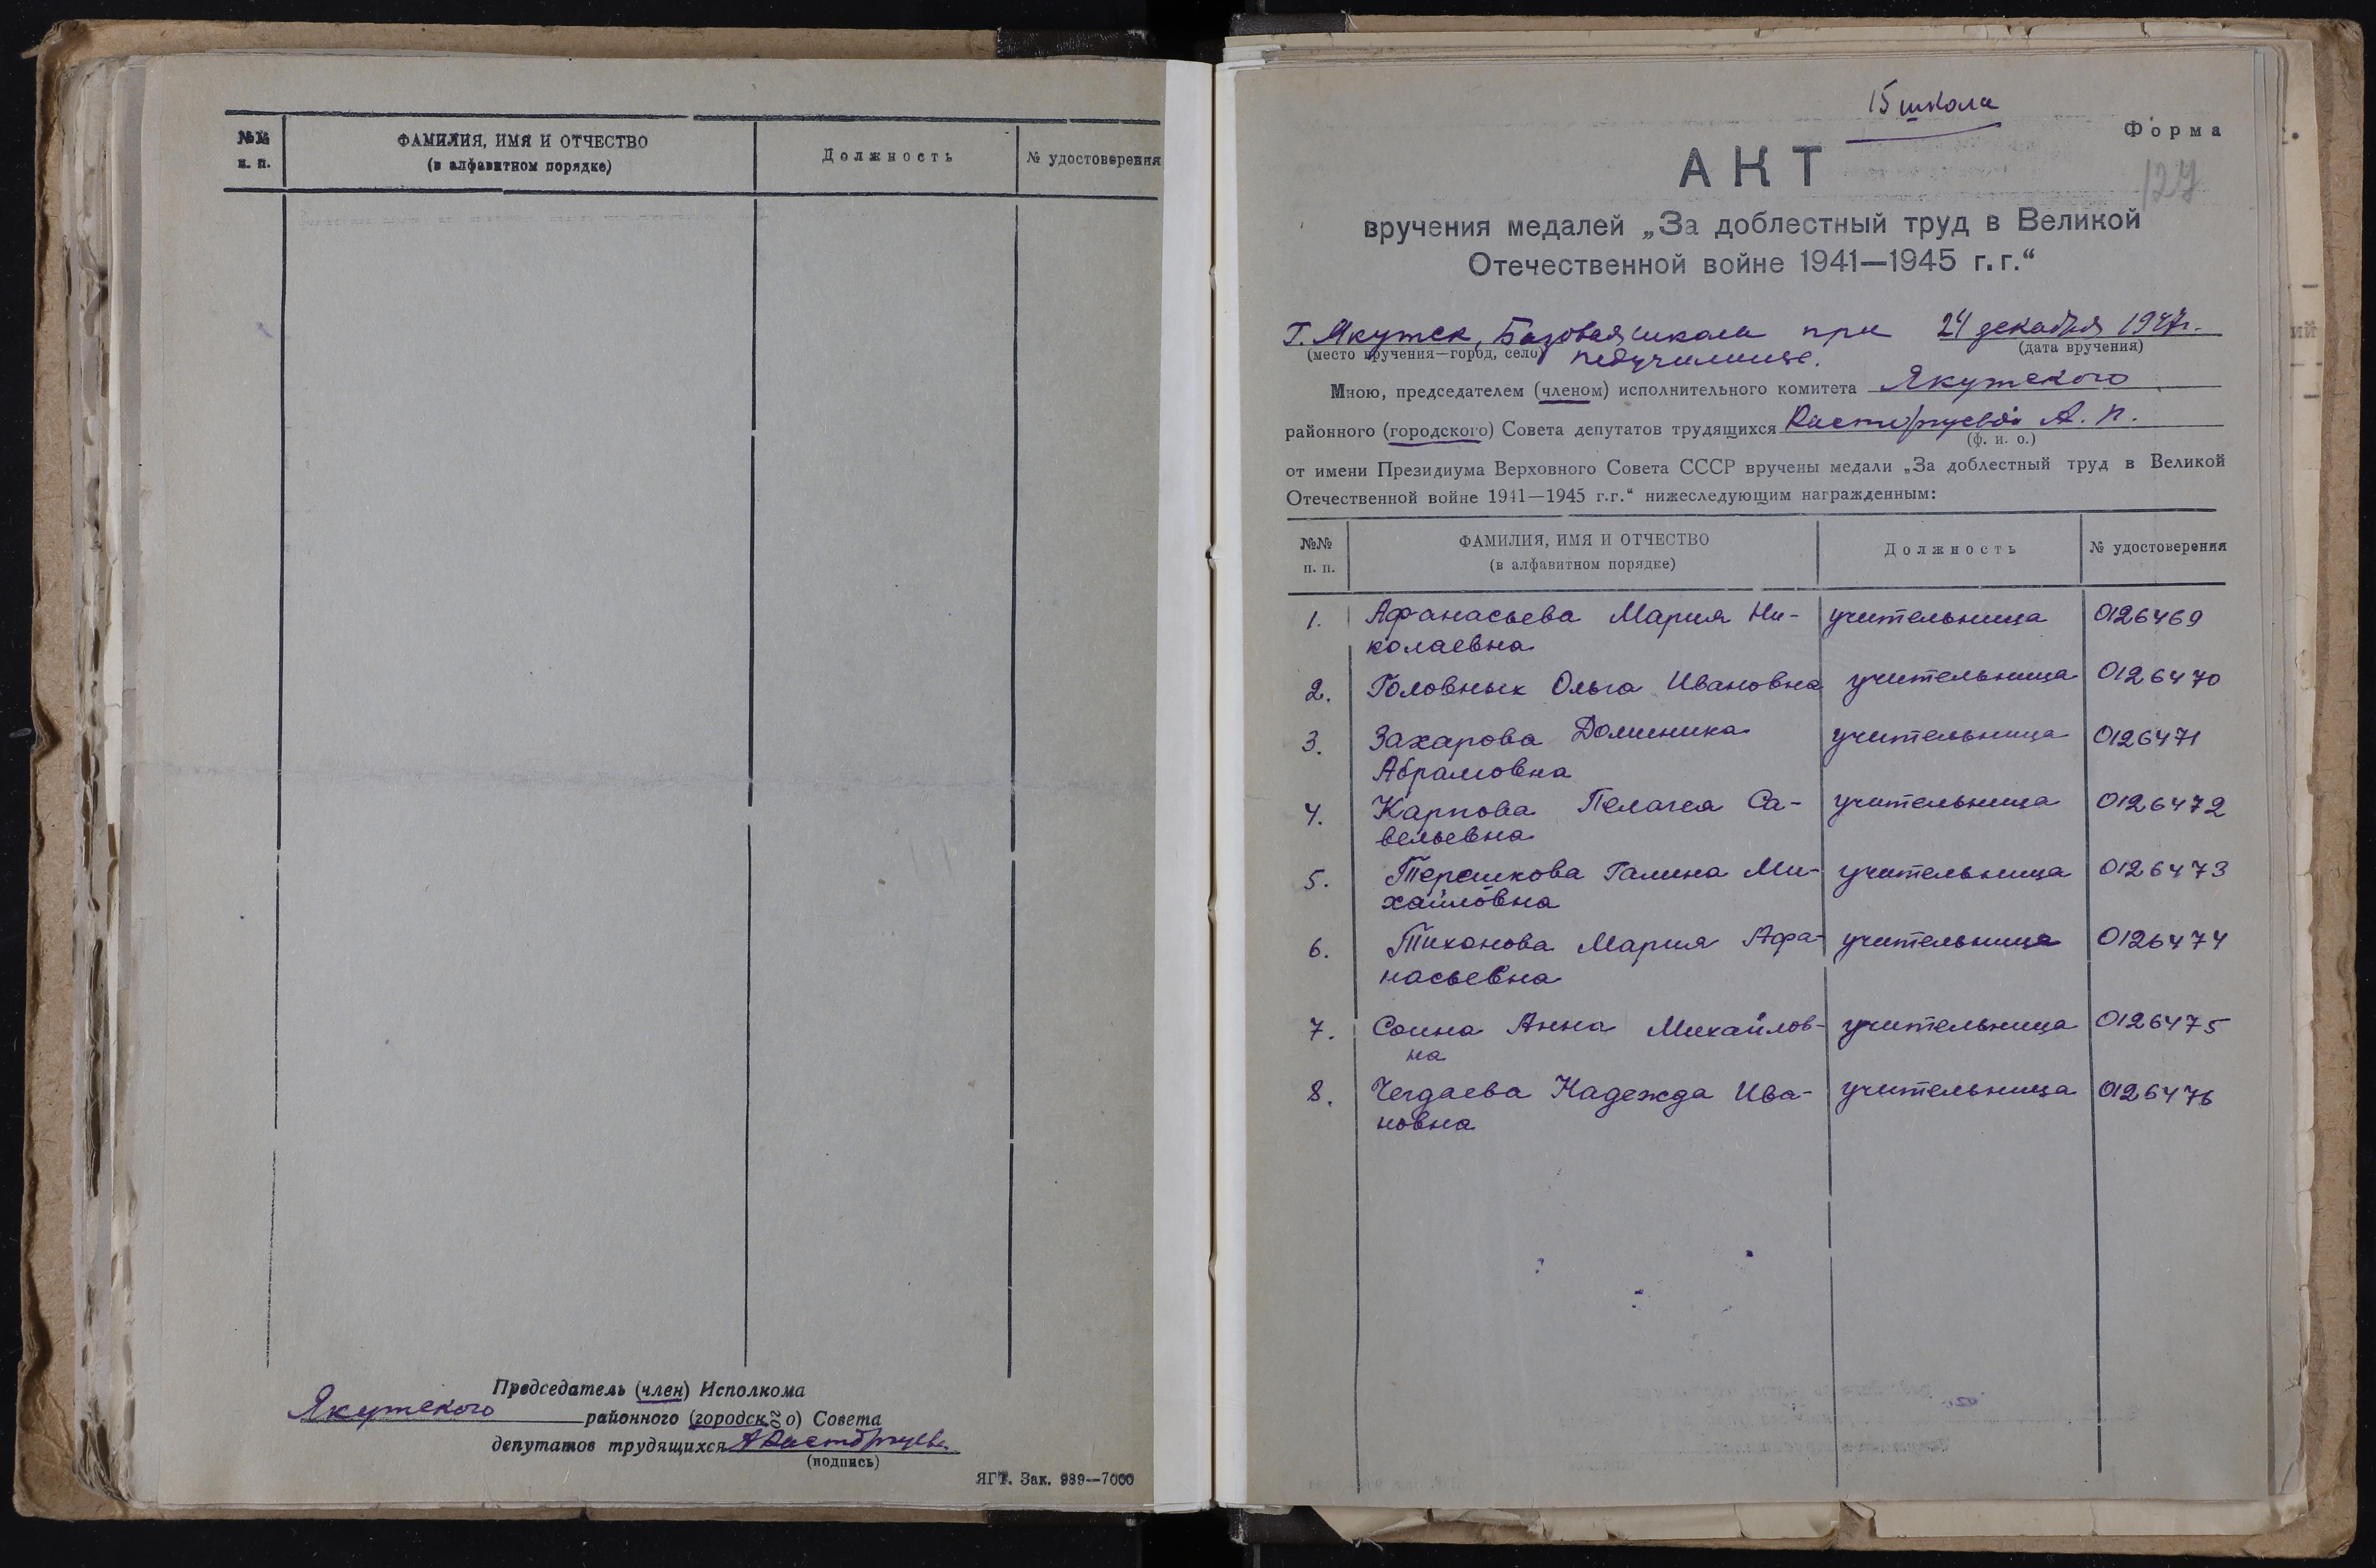 №№
п. п.
ФАМИЛИЯ, ИМЯ И ОТЧЕСТВО
(в алфавитном порядке)
Должность
№ удостоверения
Председатель (член) Исполкома
Якутского районного (городского) Совета
депутатов трудящихся АРасторгуева
(подпись)
ЯГТ. Зак. 989—7000
15 школа
Форма
127
АКТ
вручения медалей „За доблестный труд в Великой
Отечественной войне 1941—1945 г.г.“
Г. Якутск, Базовая школа при 24 декабря 1947г.
(место вручения—город, село) педучилище.
(дата вручения)
Мною, председателем (членом) исполнительного комитета Якутского
районного (городского) Совета депутатов трудящихся Расторгуевой А. П.
(ф. и. о.)
от имени Президиума Верховного Совета СССР вручены медали „За доблестный труд в Великой
Отечественной войне 1941—1945 г.г.“ нижеследующим награжденным:
№№
п. п.
ФАМИЛИЯ, ИМЯ И ОТЧЕСТВО
(в алфавитном порядке)
Должность
№ удостоверения
1. Афанасьева Мария Ни- учительница 0126469
колаевна
2. Головных Ольга Ивановна учительница 0126470
3. Захарова Домника учительница 0126471
Абрамовна
4. Карпова Пелагея Са- учительница 0126472
вельевна
5. Терешкова Галина Ми- учительница 0126473
хайловна
6. Тихонова Мария Афа- учительница 0126474
насьевна
7. Соина Анна Михайлов- учительница 0126475
на
8. Чегдаева Надежда Ива- учительница 0126476
новна